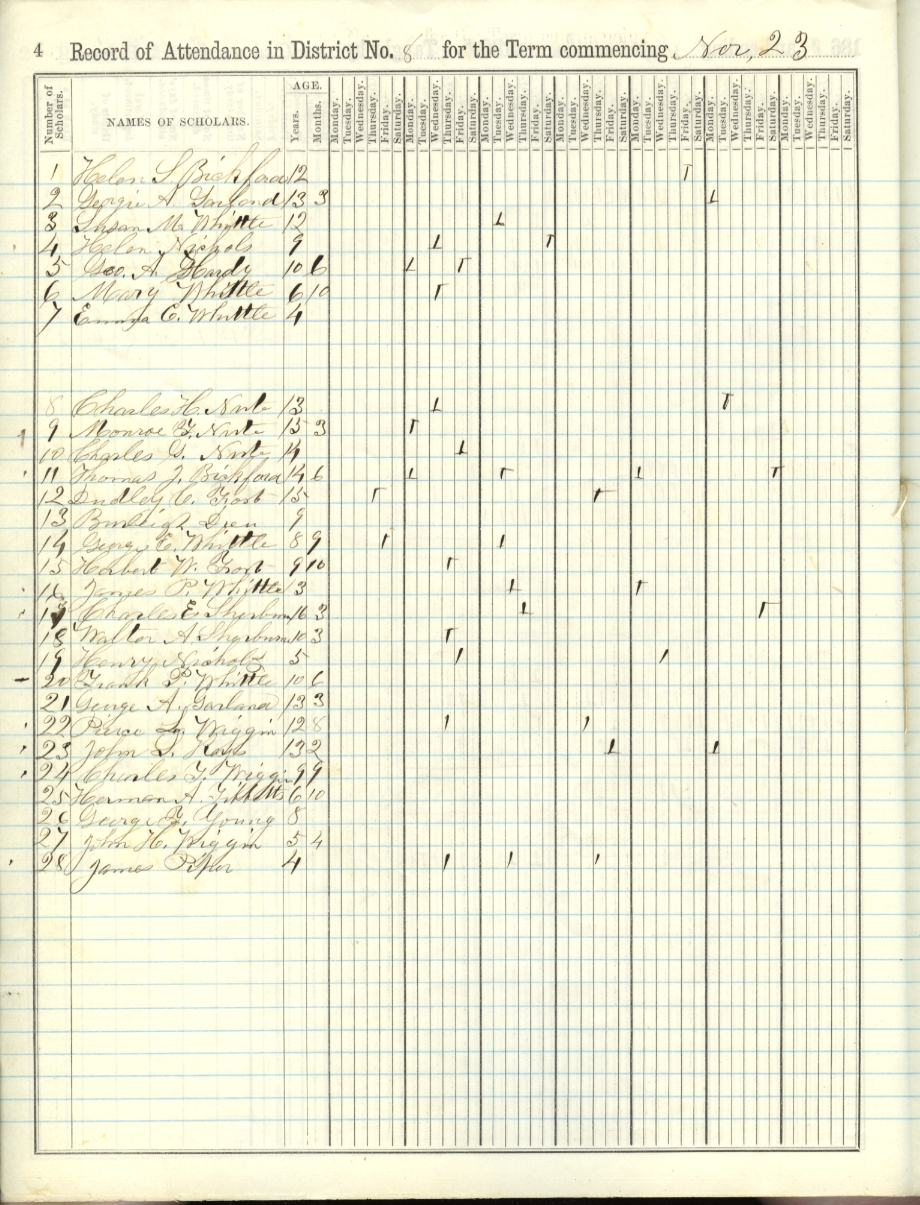 4 Record of Attendance in District No. 8 for the Term commencing Nov, 23
Number of Scholars. NAMES OF SCHOLARS. AGE. Years. Months. Monday. Tuesday. Wednesday. Thursday. Friday. Saturday. Monday. Tuesday. Wednesday. Thursday. Friday. Saturday. Monday. Tuesday. Wednesday. Thursday. Friday. Saturday. Monday. Tuesday. Wednesday. Thursday. Friday. Saturday. Monday. Tuesday. Wednesday. Thursday. Friday. Saturday. Monday. Tuesday. Wednesday. Thursday. Friday. Saturday. Monday. Tuesday. Wednesday. Thursday. Friday. Saturday.
1 Helen S. Bickford 12
2 Georgie A. Garland 13 3
3 Susan M. Whittle 12
4 Helen Nichols 9
5 Geo. A. Hardy 10 6
6 Mary Whittle 6 10
7 Emma E. Whittle 4
8 Charles H. Nute 13
9 Monroe F. Nute 15 3
10 Charles G. Nute 14
11 Thomas J. Bickford 14 6
12 Dudley C. Frost 15
13 Burleigh 9
14 George E. Whittle 8 9
15 Herbert W. Frost 9 10
16 James P. Whittle 13
17 Charles E. Sherburn 16 3
18 Walter A Sherburn 10 3
19 Henry Nichols 5
20 Frank P. Whittle 10 6
21 George A. Garland 13 3
22 Pierce L. Wiggin 12 8
23 John S. 13 2
24 Charles F. Wiggin 9 9
25 Herman A. Tibbetts 6 10
26 George F. Young 8
27 John H. Wiggin 5 4
28 James Piper 4